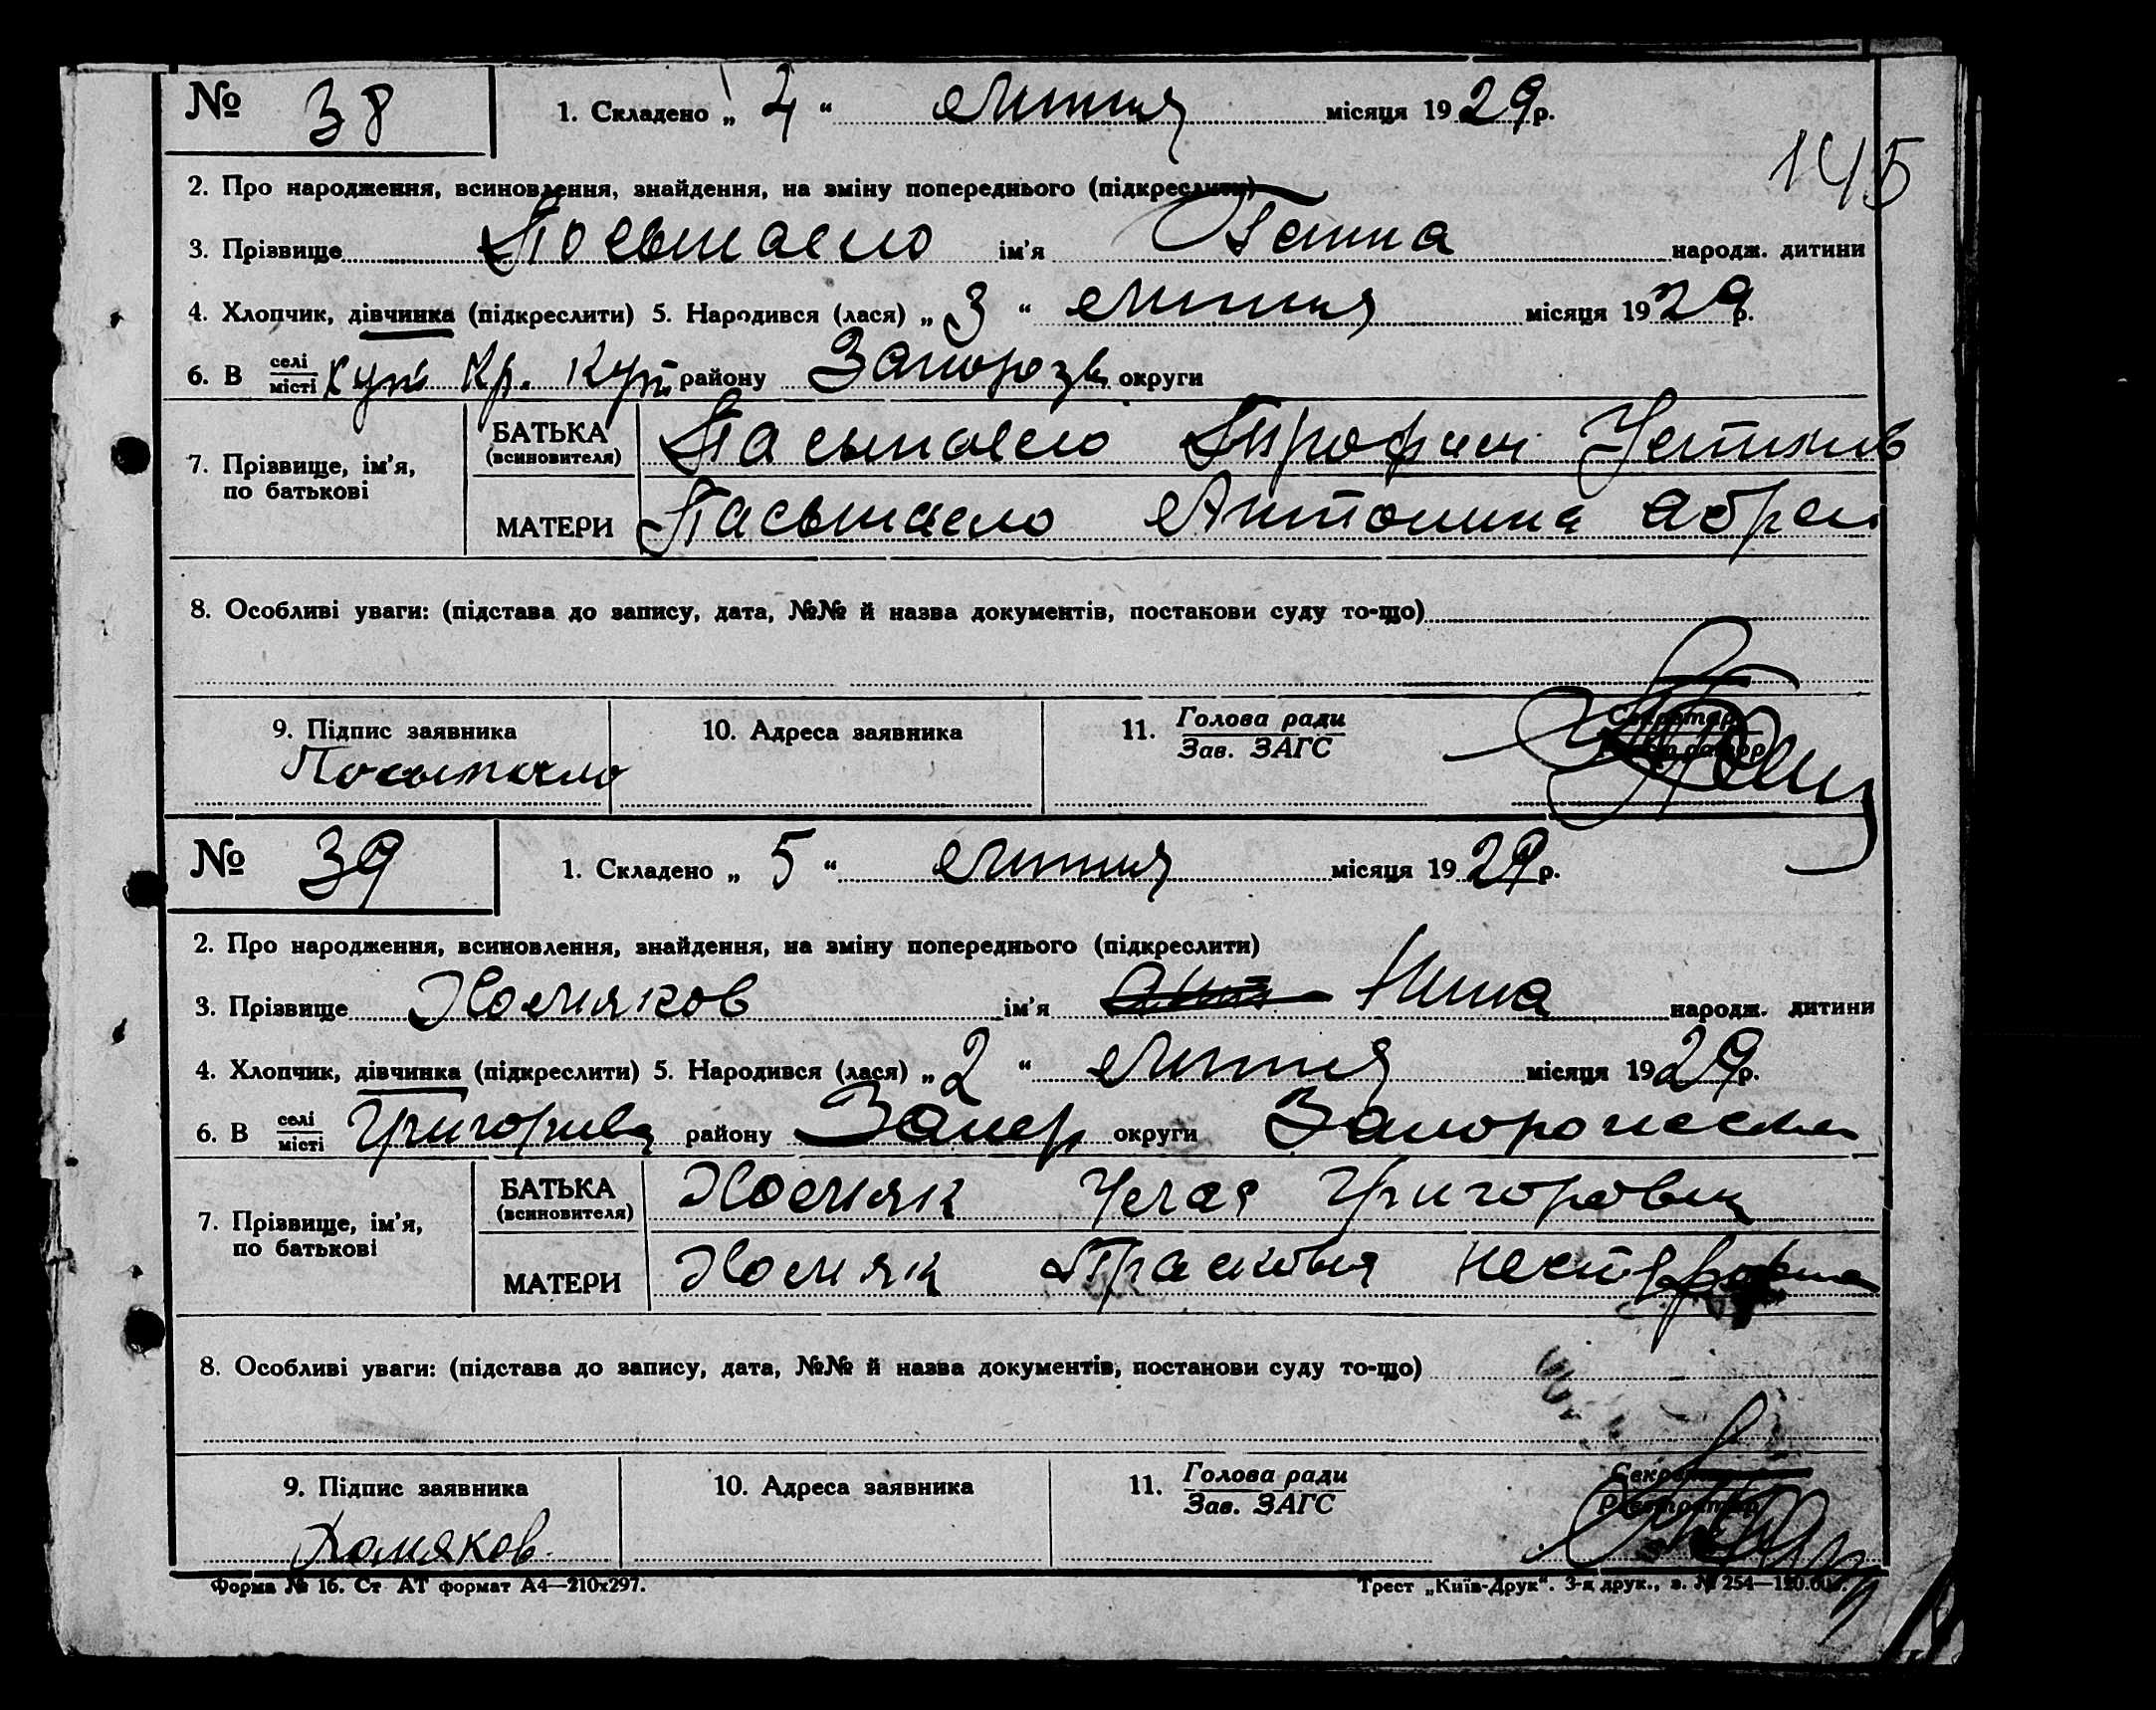 № 38 1. Складено „ 4 “ липня місяця 1929 р.
145
2. Про народження, всиновлення, знайдення, на зміну попереднього (підкреслити)
3. Прізвище Посыпайло ім'я Ганна народж. дитини
4. Хлопчик, дівчинка (підкреслити) 5. Народився (лася) „ 3 “ липня місяця 1929 р.
6. В селі місті Кр. Кут. району округи
7. Прізвище, ім'я, по батькові
БАТЬКА (всиновителя) Трофим
МАТЕРИ Антонина
8. Особливі уваги: (підстава до запису, дата, №№ й назва документів, постанови суду то-що)
9. Підпис заявника 10. Адреса заявника 11. Голова ради Зав. ЗАГС Секретар
№ 39 1. Складено „ 5 “ липня місяця 1929 р.
2. Про народження, всиновлення, знайдення, на зміну попереднього (підкреслити)
3. Прізвище Хомяков ім'я Нина народж. дитини
4. Хлопчик, дівчинка (підкреслити) 5. Народився (лася) „ 2 “ липня місяця 1929 р.
6. В селі місті району округи
7. Прізвище, ім'я, по батькові
БАТЬКА (всиновителя) Хомяк Григорович
МАТЕРИ Хомяк Прасковья
8. Особливі уваги: (підстава до запису, дата, №№ й назва документів, постанови суду то-що)
9. Підпис заявника 10. Адреса заявника 11. Голова ради Зав. ЗАГС Секретар Реєстратор
Хомяков
Форма № 16. Ст АТ формат А4—210х297. Трест „Київ-Друк“. 3-я друк., з. № 254